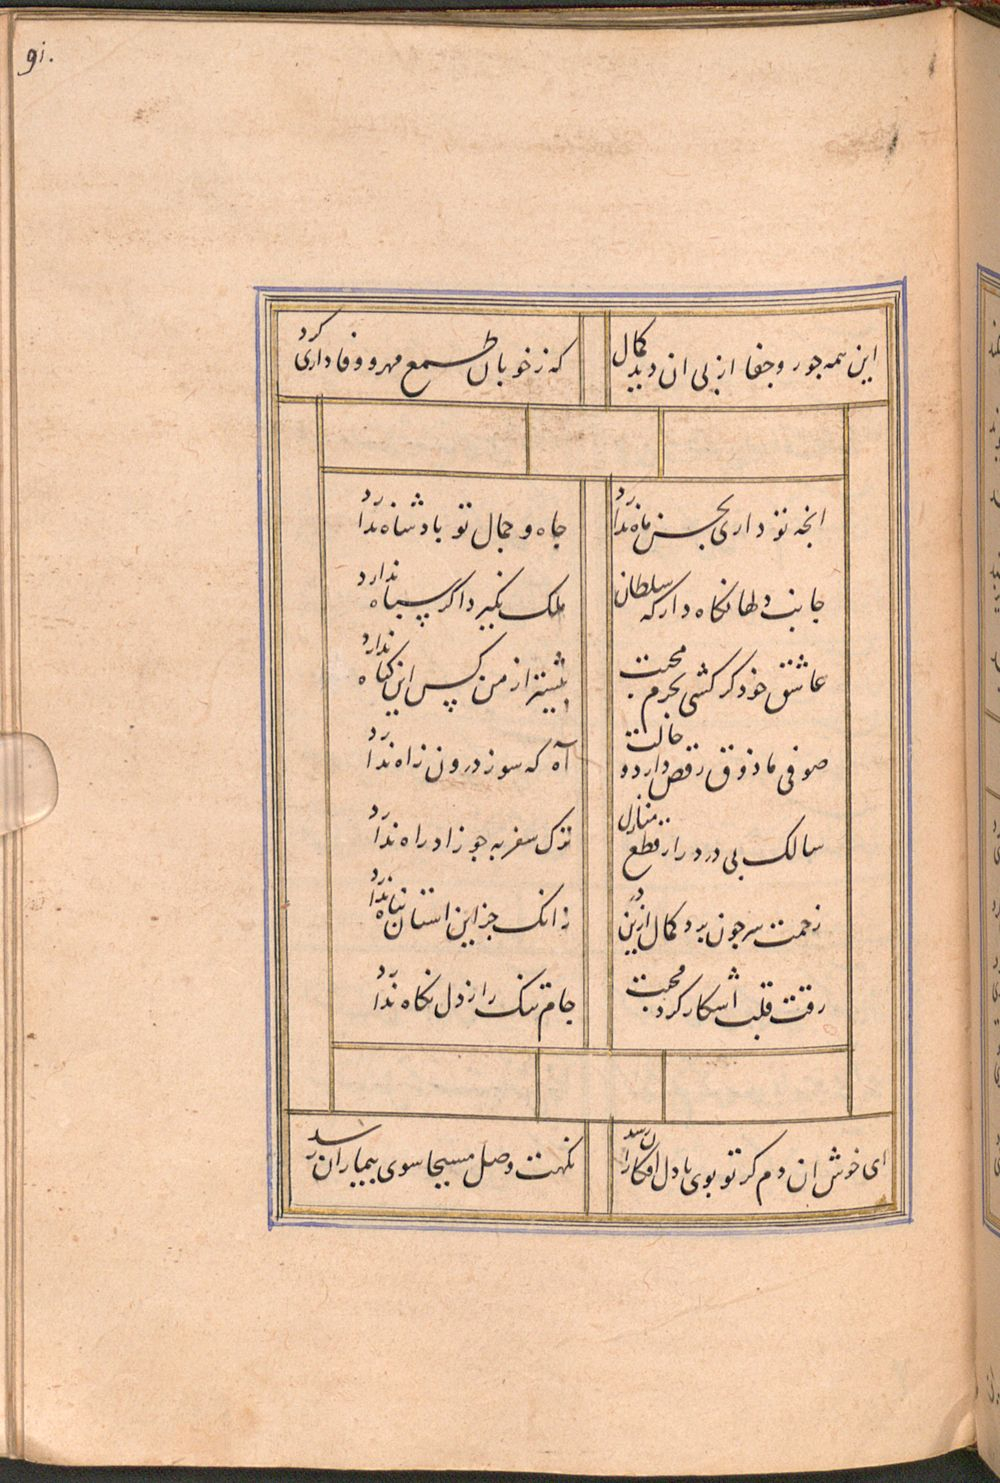 91.
این همه جور و جفا از پی ان دید کمال
که ز خوبان طمع مهر و وفاداری کرد
انچه تو داری بحسن ماه ندارد
جاه و جمال تو بادشاه ندارد
جانب دلها نکاه دار که سلطان
ملک نکیرد اکر سپاه ندارد
عاشق خود کر کشی بجرم محبت
بیشتر از من کس این کناه ندارد
صوفی ما ذوق رقص دارد و حالت
آه که سوز درون ز اه ندارد
سالک بی درد را ز قطع منازل
ترک سفر به جو زاد راه ندارد
زحمت سر جون برد کمال ازین در
زانک جز این استان پناه ندارد
رقت قلب اشکار کرد محبت
جام تنک راز دل نکاه ندارد
ای خوش ان دم کز تو بوی با دل افکاران رسد
نکهت وصل مسیحا سوی بیماران رسد